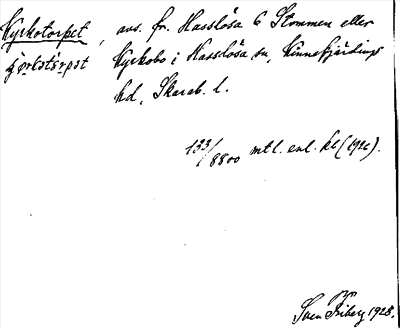 Kyrkotorpet, avs. fr. Hasslösa 6 Stommen eller
Kyrkobo i Hasslösa sn, Kinnefjärdings
hd, Skarab. l.
133/8800 mtl. enl. kl (1926).
Sven Friberg 1928.